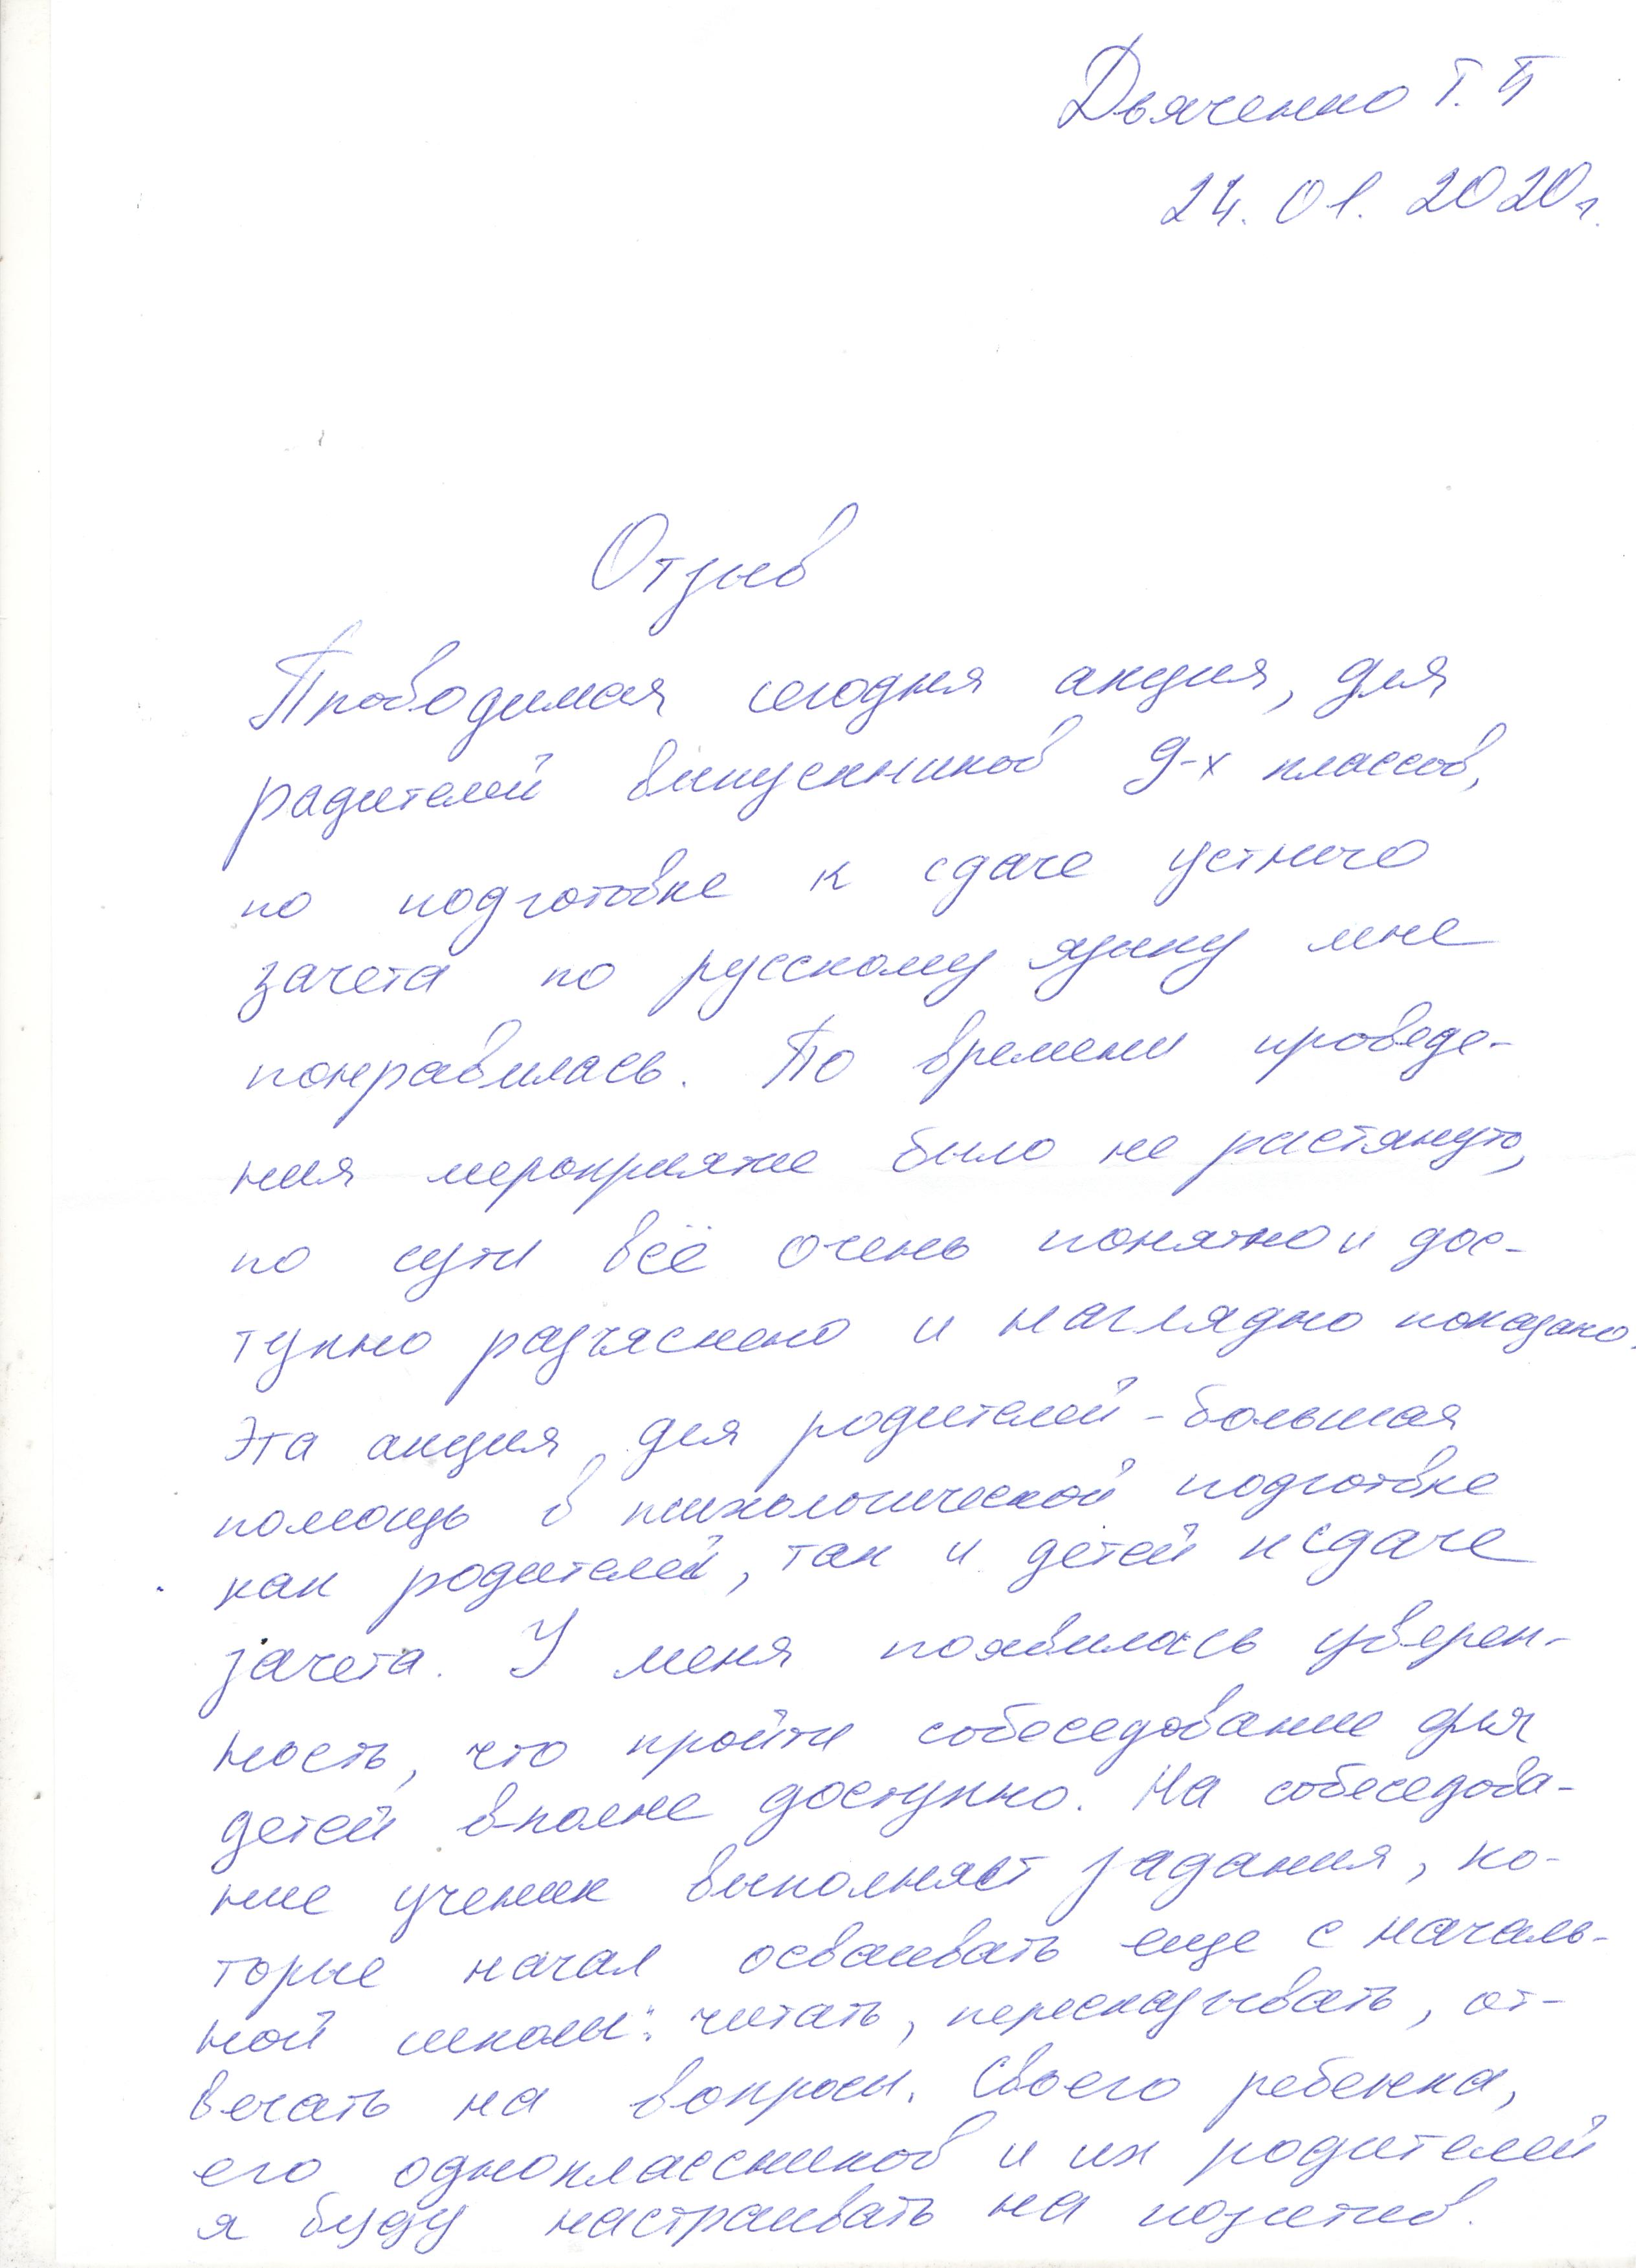 Дьяченко Т. П
24. 01. 2020г.
Отзыв
Проводимая сегодня акция, для
радителей выпускников 9-х классов,
по подготовке к сдаче устного
зачета по русскому языку мне
понравилась. По времени проведе-
ния мероприятие было не растянуто,
по сути всё очень понятно и дос-
тупно разъяснено и наглядно показано.
Эта акция для родителей - большая
помощь в психологической подготовке
как родителей, так и детей к сдаче
зачета. У меня появилась уверен-
ность, что пройти собеседование для
детей вполне доступно. На собеседова-
ние ученик выполняет задания, ко-
торые начал осваивать еще с началь-
ной школы: читать, пересказывать, от-
вечать на вопросы. Своего ребенка,
его одноклассников и их родителей
я буду настраивать на позитив.